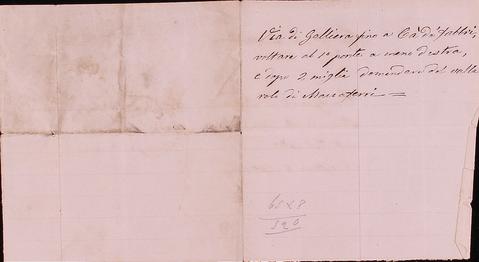 Via di Galliera fino a Cà de Fabbri,
voltare al 1o ponte a mano destra,
e dopo 2 miglia domandare del valle
role di Maccaferri =
65x8
520